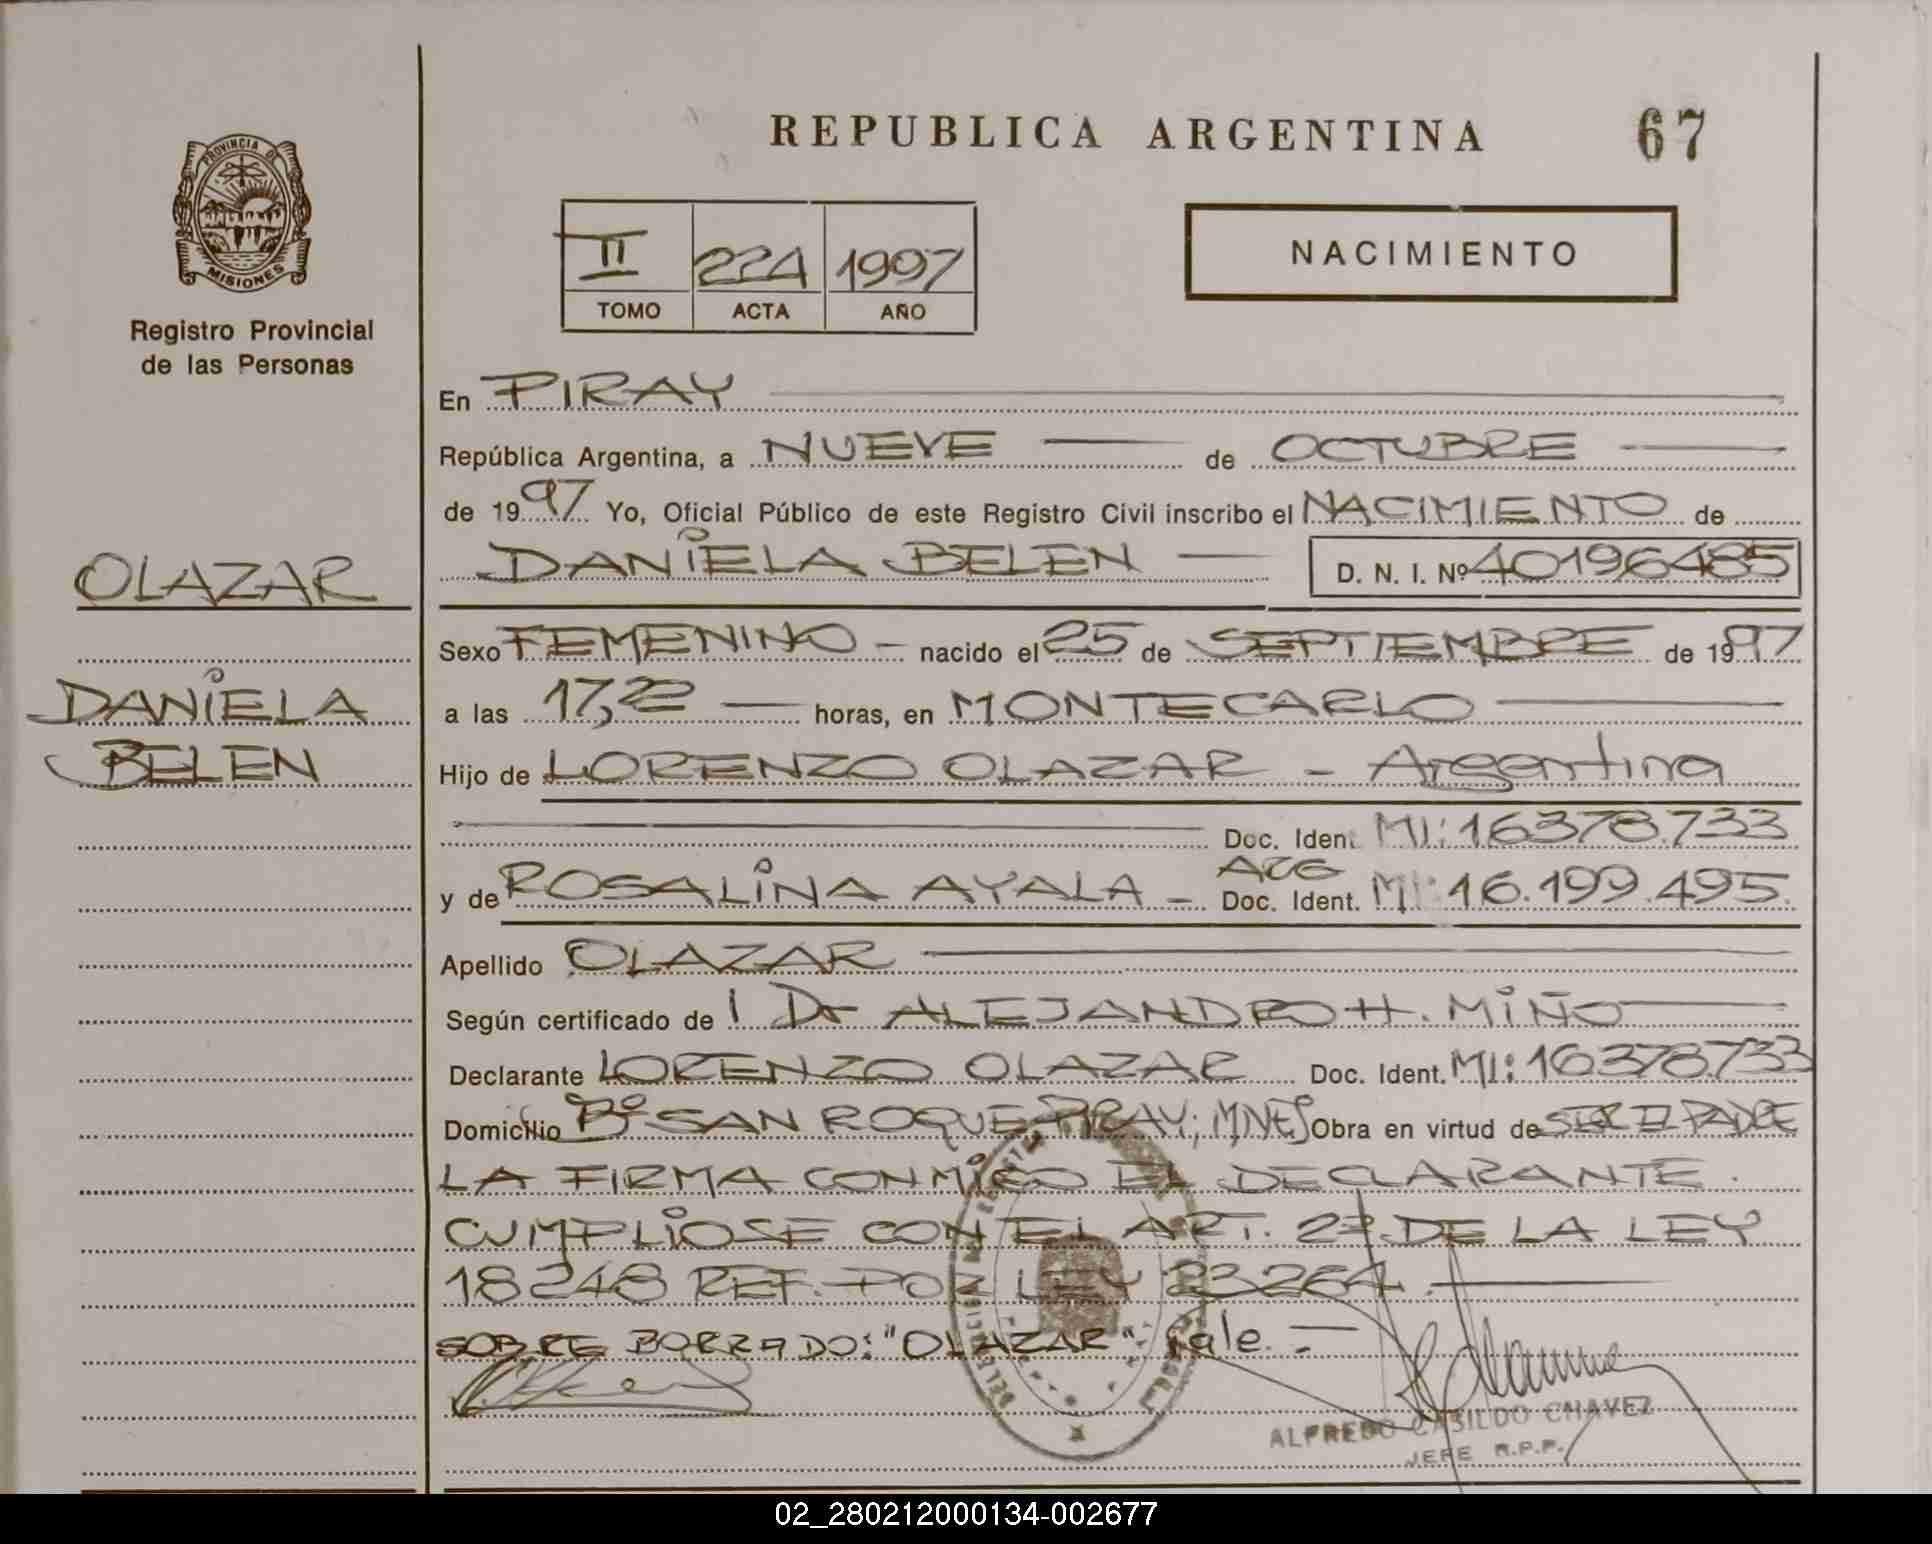 REPUBLICA ARGENTINA
67
PROVINCIA DE
MISIONES
Registro Provincial
de las Personas
II 224 1997
TOMO ACTA AÑO
NACIMIENTO
En PIRAY
República Argentina, a NUEVE de OCTUBRE
de 1997 Yo, Oficial Público de este Registro Civil inscribo el NACIMIENTO de
OLAZAR
DANIELA BELEN D. N. I. Nº 40196485
Sexo FEMENINO - nacido el 25 de SEPTIEMBRE de 1997
DANIELA
a las 17,22 horas, en MONTECARLO
BELEN
Hijo de LORENZO OLAZAR - Argentina
Doc. Ident. MI: 16378.733
y de ROSALINA AYALA - Doc. Ident. MI 16.199.495
Apellido OLAZAR
Según certificado de Dr ALEJANDRO H. MIÑO
Declarante LORENZO OLAZAR Doc. Ident. MI: 16378733
Domicilio Bº SAN ROQUE PIRAY; MNES Obra en virtud de SER EL PADRE
LA FIRMA CONMIGO EL DECLARANTE.
CUMPLIOSE CON EL ART. 2º DE LA LEY
18248 REF. POR LEY 23264.
SOBRE BORRADO: "OLAZAR" vale. -
ALFREDO CASILDO CHAVEZ
JEFE R.P.P.
02_280212000134-002677